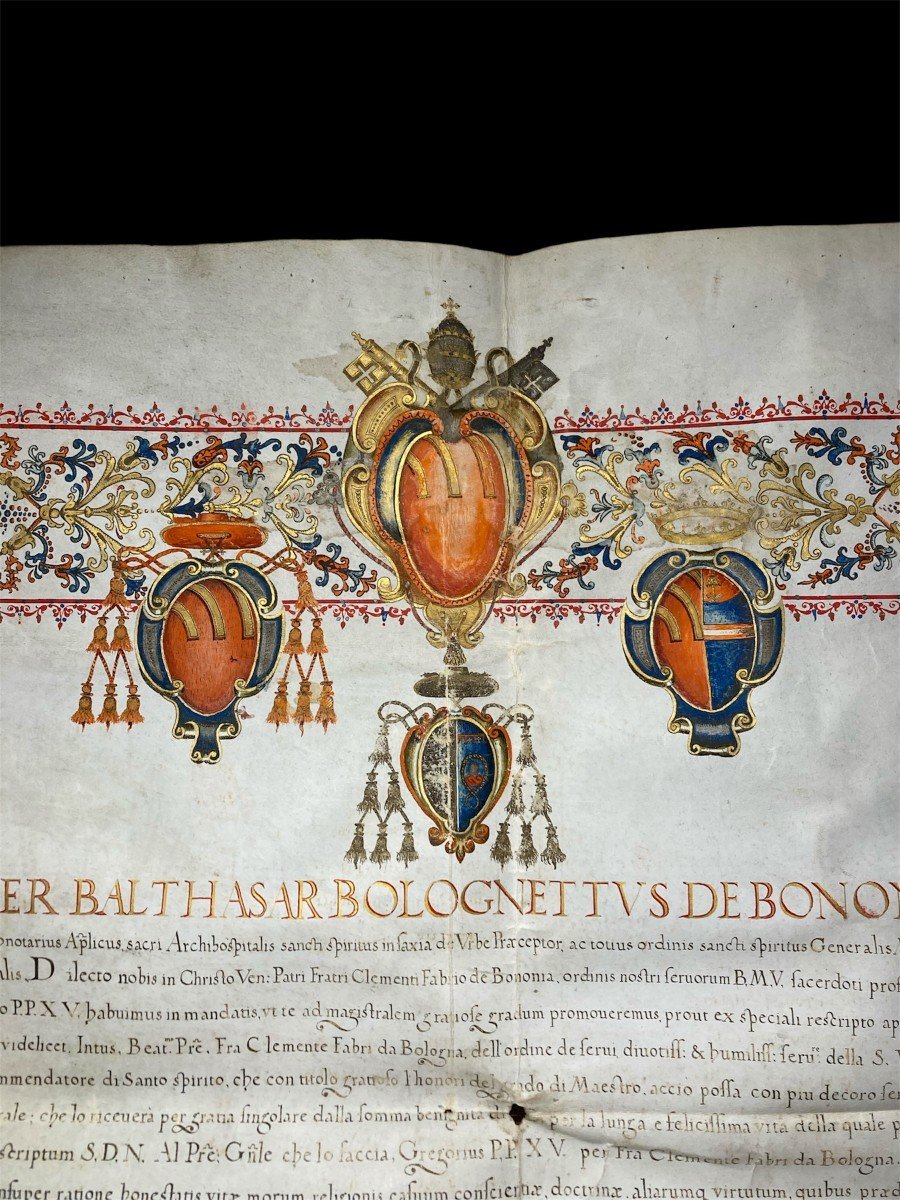 ER BALTHASAR BOLOGNETTVS DE BONO
onotarius Ap̃licus, sacri Archihospitalis sancti spiritus in saxia de Vrbe Præceptor, ac totius ordinis sancti spiritus Generalis
alis, Dilecto nobis in Christo Ven: Patri Fratri Clementi Fabrio de Bononia, ordinis nostri seruorum B.M.V. sacerdoti prof
o P.P. XV. habuimus in mandatis, vt te ad magistralem gratiose gradum promoueremus, prout ex speciali rescripto ap
videlicet, Intus, Beat.ᵐᵒ Pr̃e, Fra Clemente Fabri da Bologna, dell'ordine de serui, diuotiss: & humiliss: seru.ʳᵉ della S. V
mmendatore di Santo spirito, che con titolo gratioso l'honori del grado di Maestro, acciò possa con piu decoro ser
rale; che lo riceuerà per gratia singolare dalla somma benignita di per la lunga e felicissima vita della quale p
scriptum S.D.N. Al Pr̃e, Gñle che lo faccia, Gregorius P.P. XV. per Fra Clemente Fabri da Bologna.
nsuper ratione honestatis vitæ morum religionis casuum conscientiæ, doctrinæ, aliarumq virtutum, quibus præd